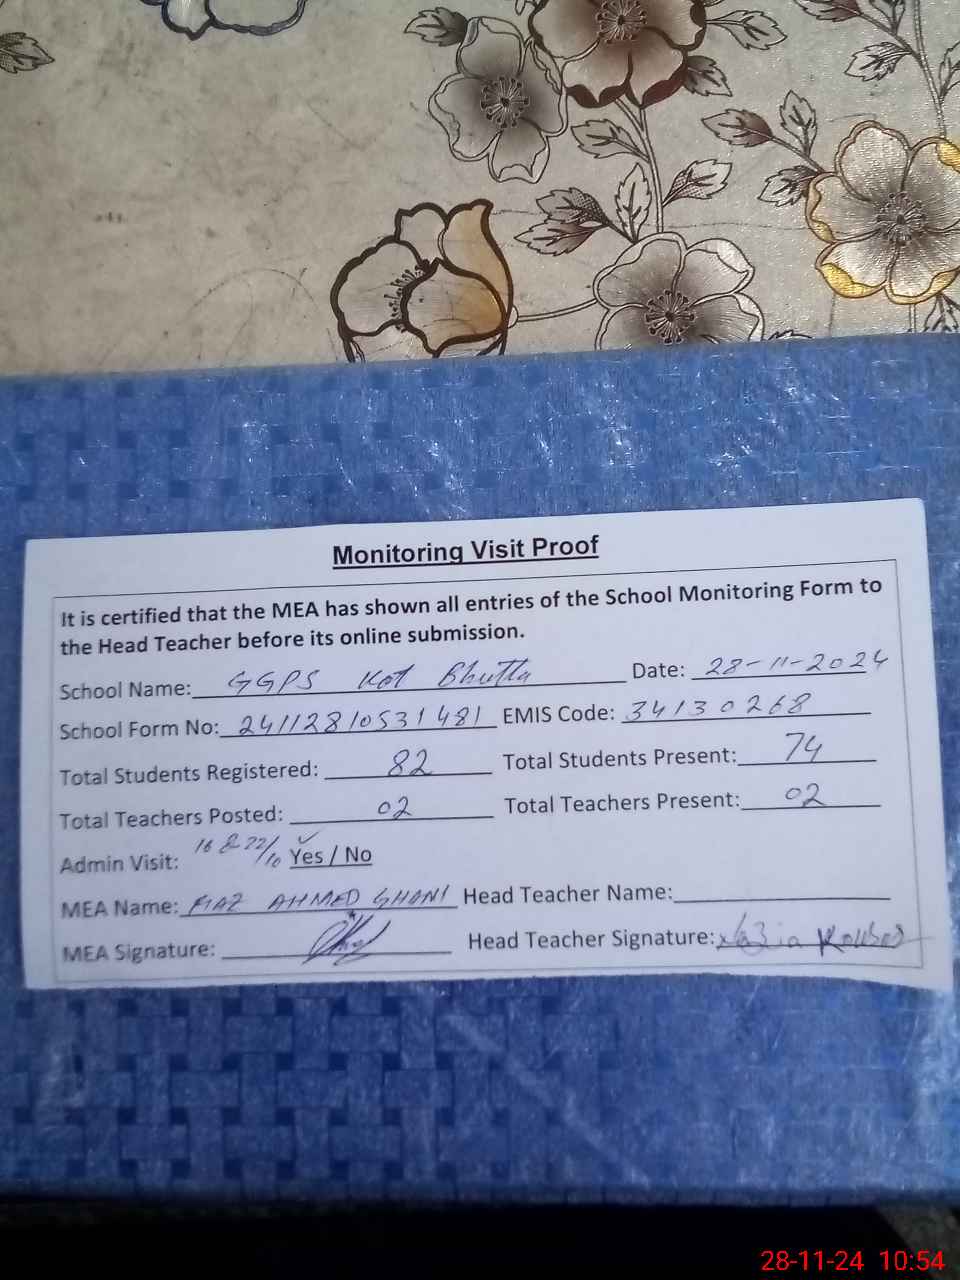 Monitoring Visit Proof
It is certified that the MEA has shown all entries of the School Monitoring Form to
the Head Teacher before its online submission.
School Name: GGPS Kot Bhutta Date: 28-11-2024
School Form No: 24112810531481 EMIS Code: 34130268
Total Students Registered: 82 Total Students Present: 74
Total Teachers Posted: 02 Total Teachers Present: 02
Admin Visit: 16 & 22/10 Yes / No
MEA Name: FIAZ AHMED GHANI Head Teacher Name:
MEA Signature: Head Teacher Signature: Nazia Kousar
28-11-24 10:54